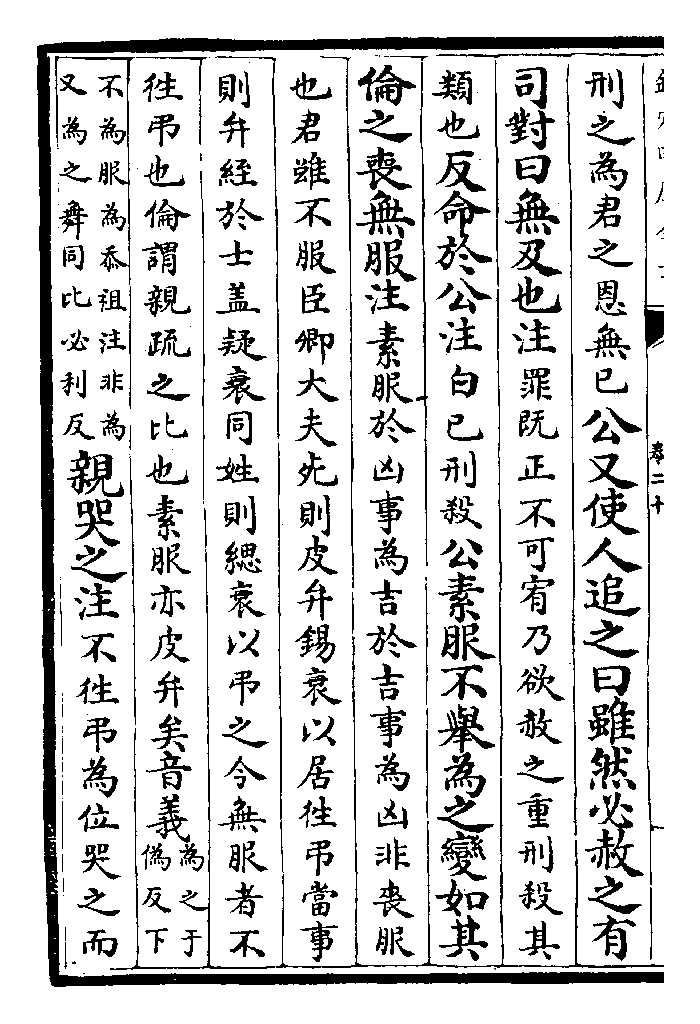 刑之為君之恩無已公又使人追之曰雖然必赦之有
司對曰無及也注罪既正不可宥乃欲赦之重刑殺其
類也反命於公注白已刑殺公素服不舉為之變如其
倫之喪無服注素服於凶事為吉於吉事為凶非喪服
也君雖不服臣卿大夫死則皮弁錫衰以居往弔當事
則弁絰於士蓋疑衰同姓則緦衰以弔之今無服者不
往弔也倫謂親疏之比也素服亦皮弁矣音義為之于
偽反下
不為服為忝祖注非為
又為之舞同比必利反
親哭之注不往弔為位哭之而
卷二十